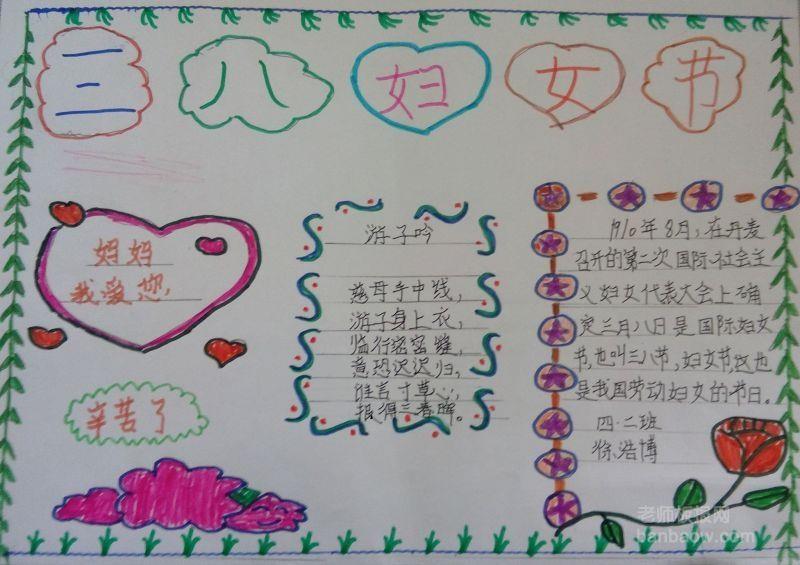 三八妇女节
妈妈
我爱您
辛苦了
游子吟
慈母手中线，
游子身上衣，
临行密密缝，
意恐迟迟归，
谁言寸草心，
报得三春晖。
1910年8月，在丹麦
召开的第二次国际社会主
义妇女代表大会上确
定三月八日是国际妇女
节，也叫三八节，妇女节，这也
是我国劳动妇女的节日。
四.二班
徐浩博
老师板报网
banbaow.com